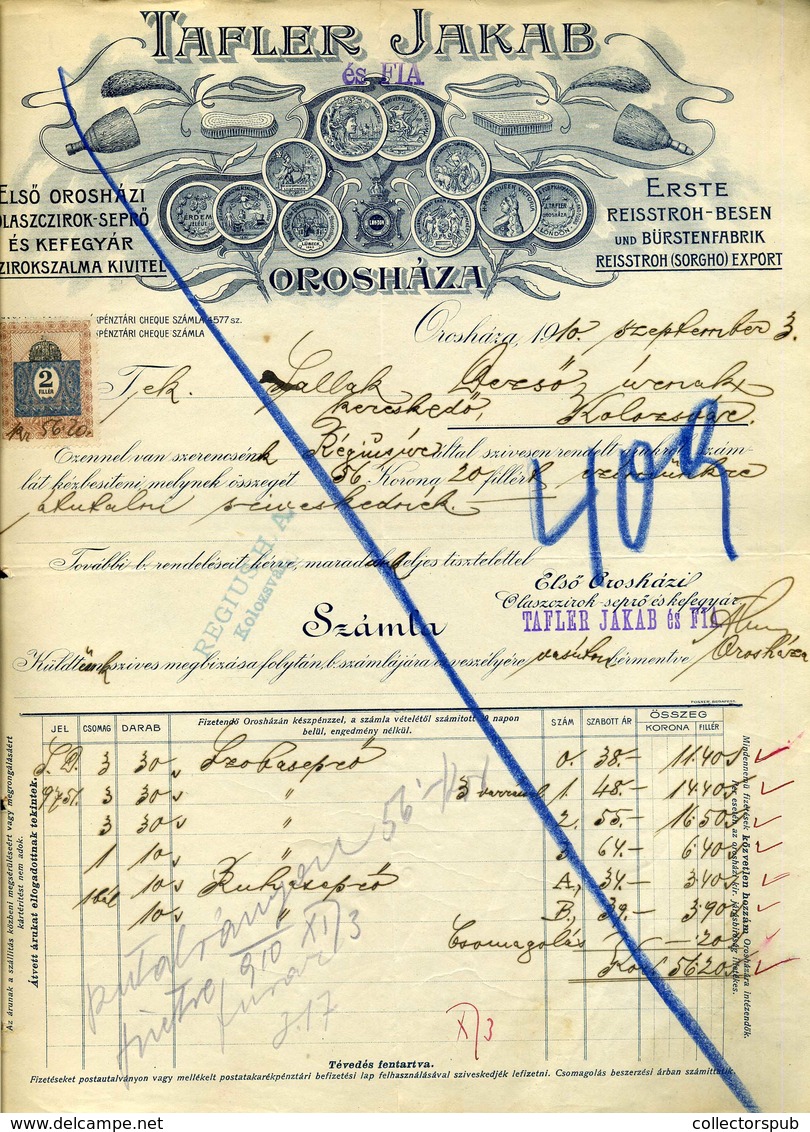 TAFLER JAKAB
és FIA
ELSŐ OROSHÁZI
OLASZCZIROK-SEPRŐ
ÉS KEFEGYÁR
CZIROKSZALMA KIVITEL
ERSTE
REISSTROH-BESEN
UND BÜRSTENFABRIK
REISSTROH (SORGHO) EXPORT
ÉRDEM
JELEÜL
LÜBECK
LONDON
QUEEN VICTORIA
J. TAFLER
OROSHÁZA
LONDON
OROSHÁZA
KPÉNZTÁRI CHEQUE SZÁMLA 4577 SZ.
KPÉNZTÁRI CHEQUE SZÁMLA
Orosháza, 1910. szeptember 3.
2
FILLÉR
Kr 56 20.
Tek. Sallak Dezső úrnak
kereskedő, Kolozsvár.
Ezennel van szerencsénk Régius úr által szivesen rendelt árukról szám-
lát kézbesiteni, melynek összegét 56 Korona 20 fillért
átutalni sziveskednék.
409
További b. rendeléseit kérve, maradok teljes tisztelettel
REGIUS H. A.
Kolozsvár.
Első Orosházi
Olaszczirok-seprő és kefegyár
TAFLER JAKAB és FIA
Orosháza
Számla
Küldtünk szives megbizása folytán, b. számlájára és veszélyére vasúton bérmentve
POSNER, BUDAPEST.
JEL CSOMAG DARAB
Fizetendő Orosházán készpénzzel, a számla vételétől számított 30 napon
belül, engedmény nélkül.
SZÁM SZABOTT ÁR ÖSSZEG
KORONA FILLÉR
S. D. 3 30 Szobaseprő 0. 38.- 11.40
9751. 3 30 " 3 varrással 1. 48.- 14.40
3 30 " 2. 55.- 16.50
1 10 " 3 64.- 6.40
1 bál 10 Ruhaseprő A., 34.- 3.40
10 " B., 39.- 3.90
Csomagolás -.20
Kor. 56.20
56
910 XI/3
X/3
Az árunak a szállitás közbeni megsérüléseért vagy megrongálásaért
kártérítést nem adok.
Átvett árukat elfogadottnak tekintek.
Mindennemű fizetések közvetlen hozzám Orosházára intézendők.
Per esetén az orosházi kir. járásbiróság illetékes.
Tévedés fentartva.
Fizetéseket postautalványon vagy mellékelt postatakarékpénztári befizetési lap felhasználásával sziveskedjék lefizetni. Csomagolás beszerzési árban számittatik.
collectorspub